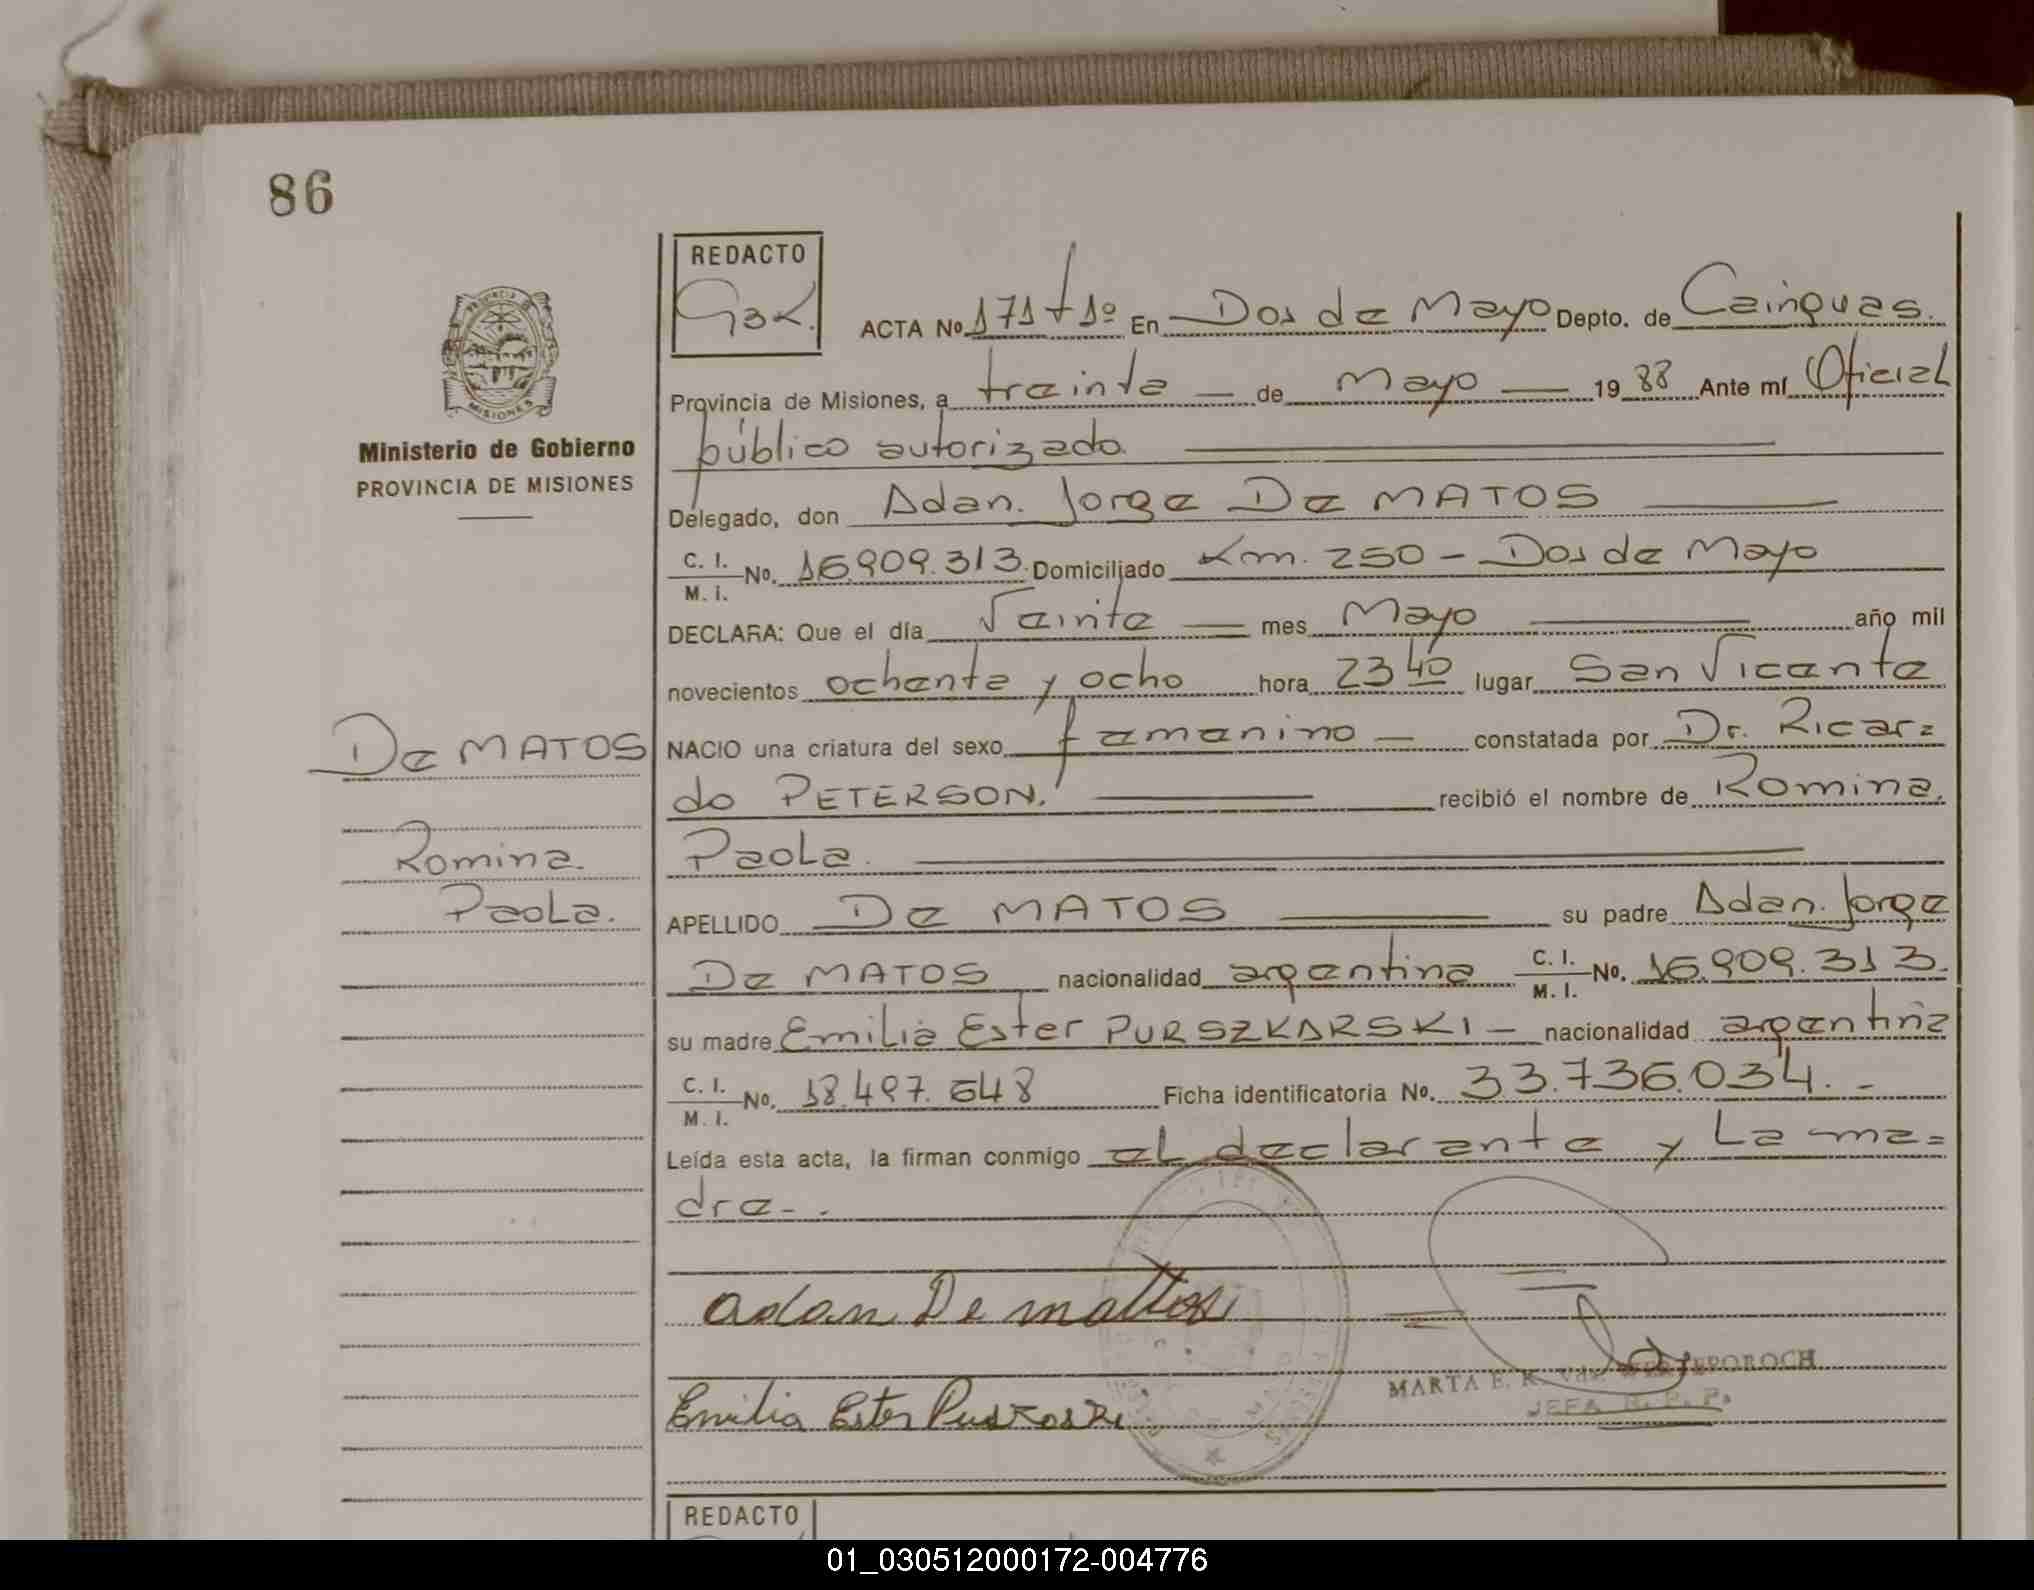 86
REDACTO
PROVINCIA DE
MISIONES
ACTA No. 171 t 1º En Dos de Mayo Depto. de Cainguas.
Provincia de Misiones, a treinta — de Mayo — 19 88 Ante mí Oficial
público autorizado.
Ministerio de Gobierno
PROVINCIA DE MISIONES
Delegado, don Adan. Jorge De MATOS
C. I. / M. I. No. 16.909.313. Domiciliado Km. 250 - Dos de Mayo
DECLARA: Que el día Veinte — mes Mayo — año mil
novecientos ochenta y ocho hora 23 40 lugar San Vicente
NACIO una criatura del sexo femenino — constatada por Dr. Ricar=
do PETERSON. — recibió el nombre de Romina.
Paola.
APELLIDO De MATOS — su padre Adan. Jorge
De MATOS nacionalidad argentina C. I. / M. I. No. 16.909.313.
su madre Emilia Ester PURSZKARSKI — nacionalidad argentina
C. I. / M. I. No. 18.497.648 Ficha identificatoria No. 33.736.034. -
Leída esta acta, la firman conmigo el declarante y La ma=
dre-.
De MATOS
Romina.
Paola.
adan De mattos
MARTA E. K. Vda. POROCH
JEFA R. P. P.
Emilia Ester
REDACTO
01_030512000172-004776